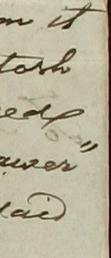 m it
tosh
ed
awer"
laid